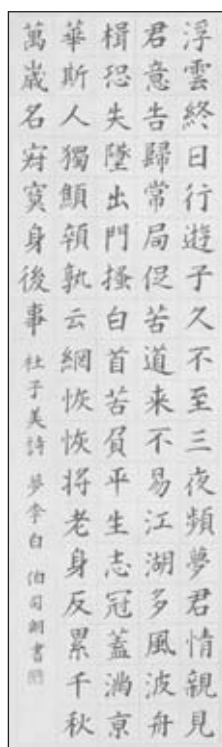 浮雲終日行遊子久不至三夜頻夢君情親見
君意告歸常局促苦道来不易江湖多風波舟
楫恐失墜出門搔白首苦負平生志冠蓋滿京
華斯人獨顦顇孰云網恢恢将老身反累千秋
萬歲名寂寞身後事 杜子美詩 夢李白 伯司朗書